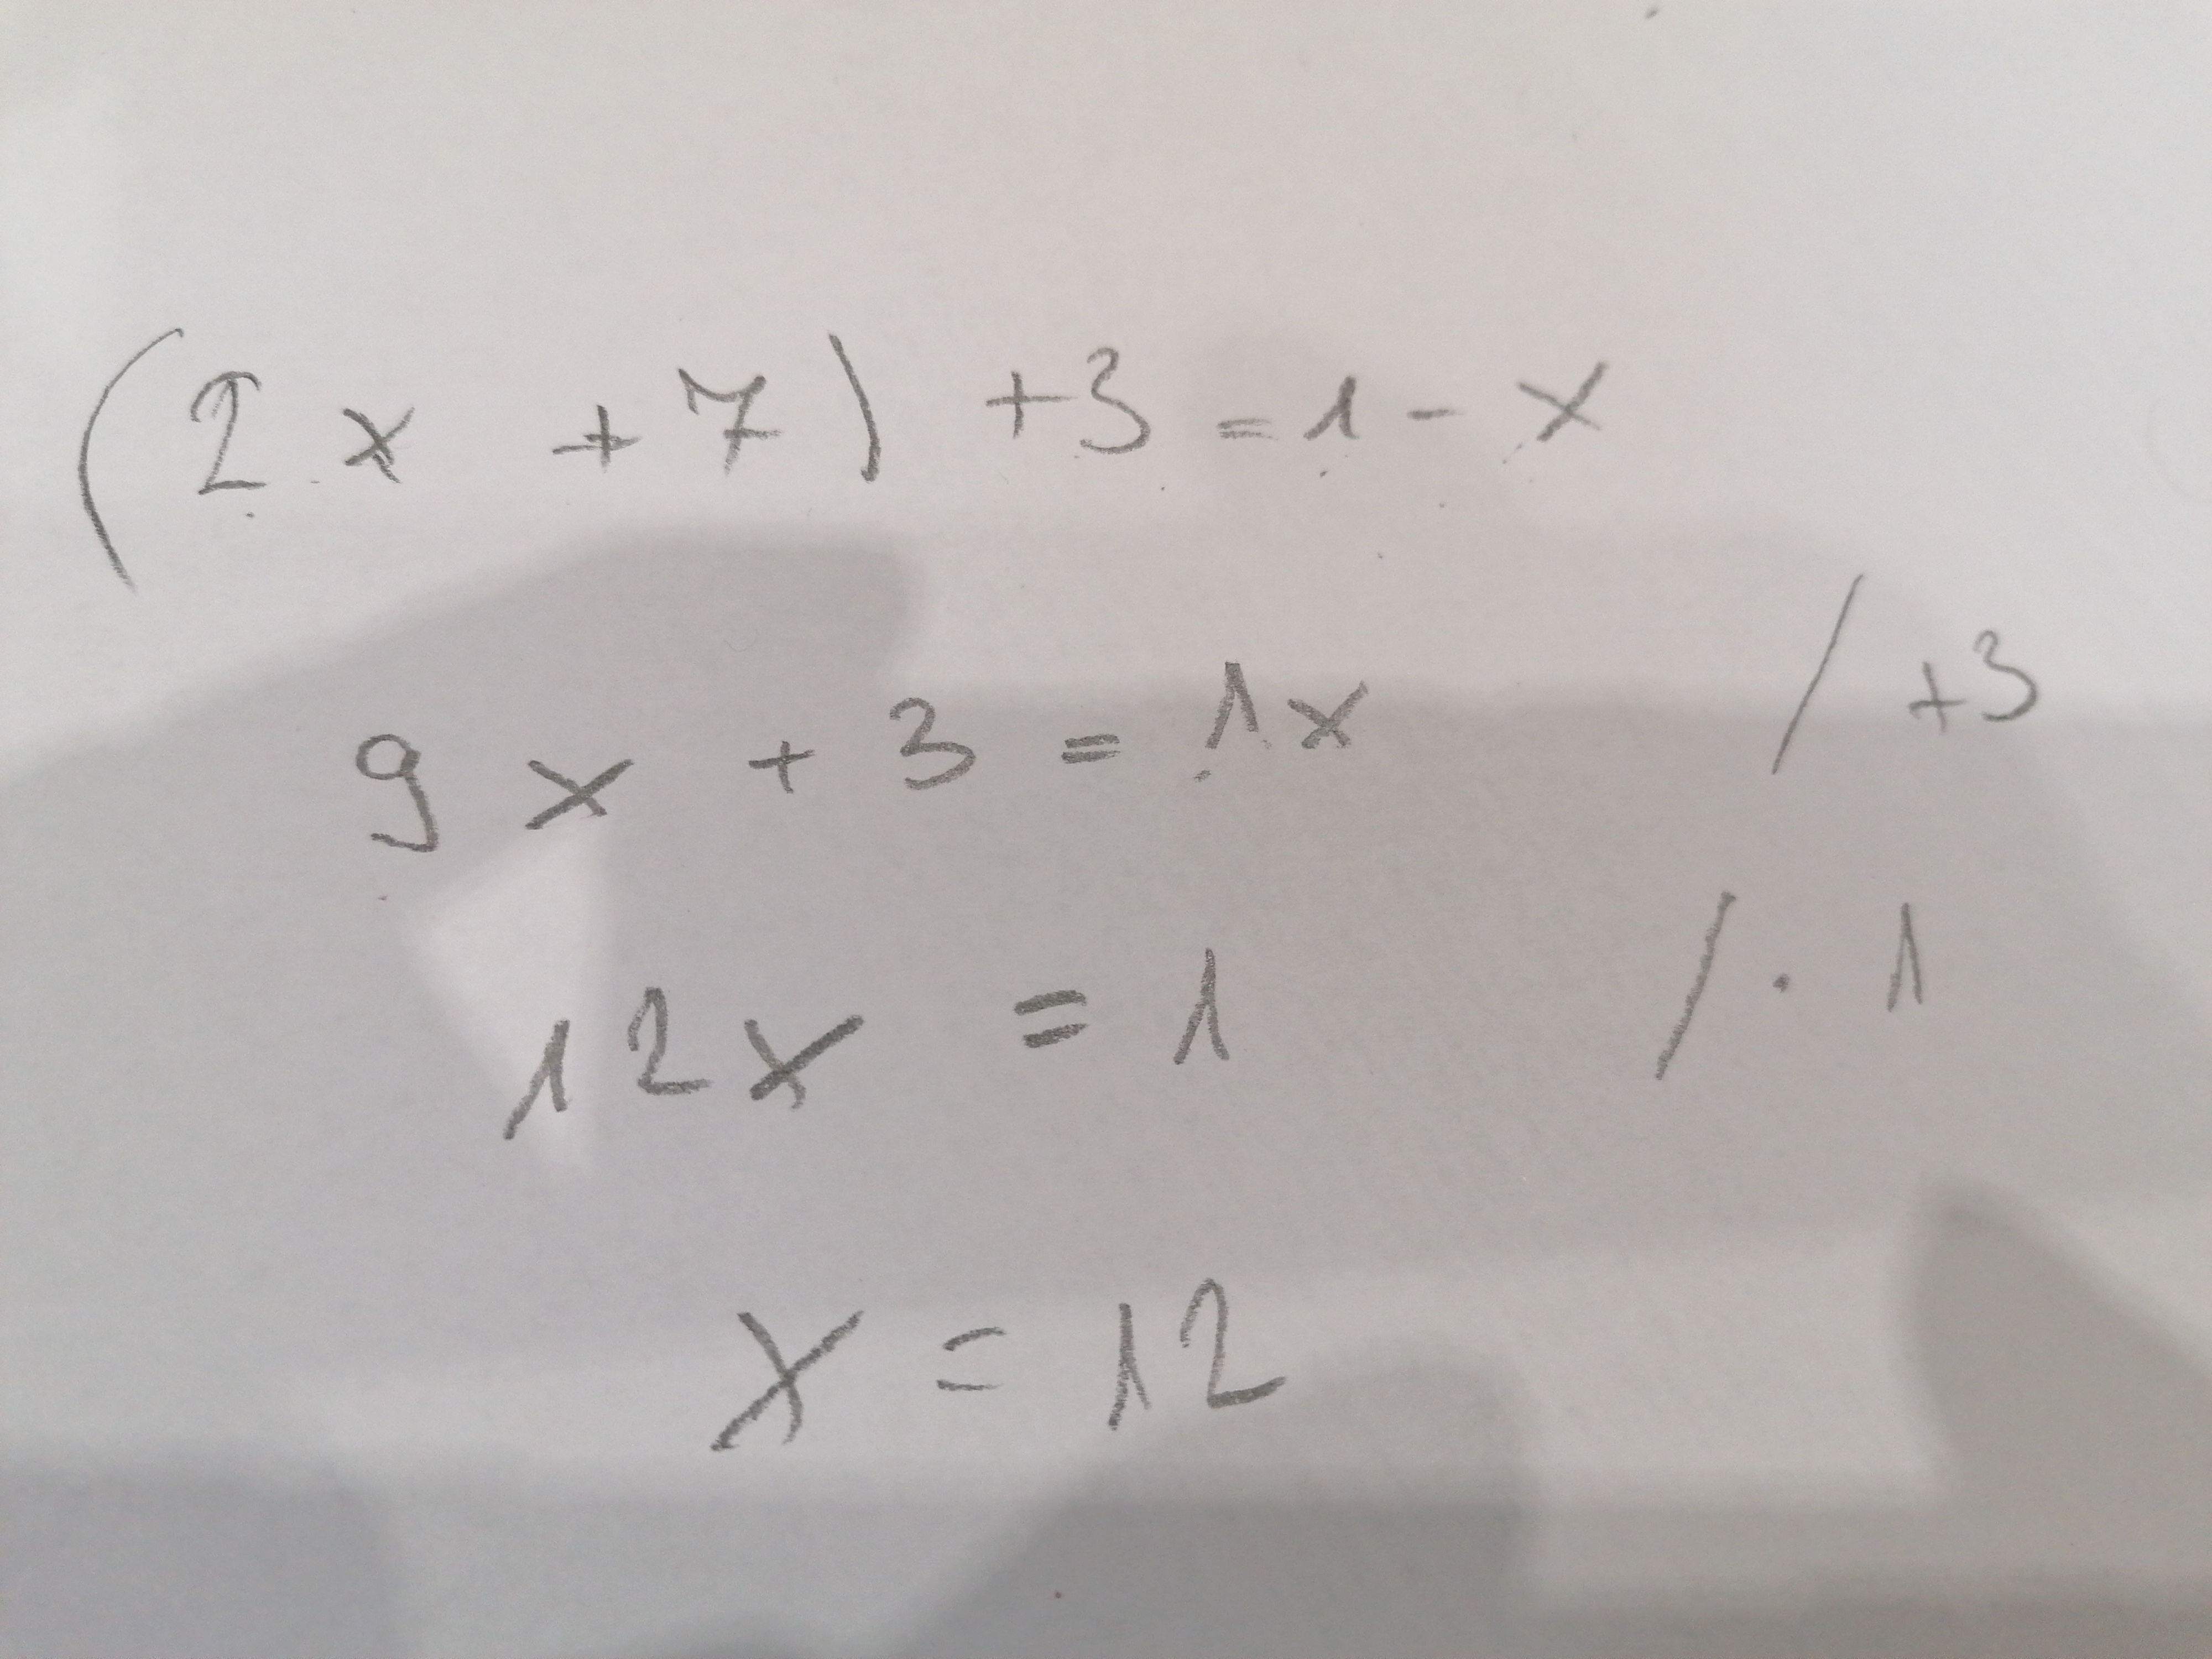 (2x + 7) +3 = 1 - x
9x + 3 = 1x / +3
12x = 1 / · 1
x = 12